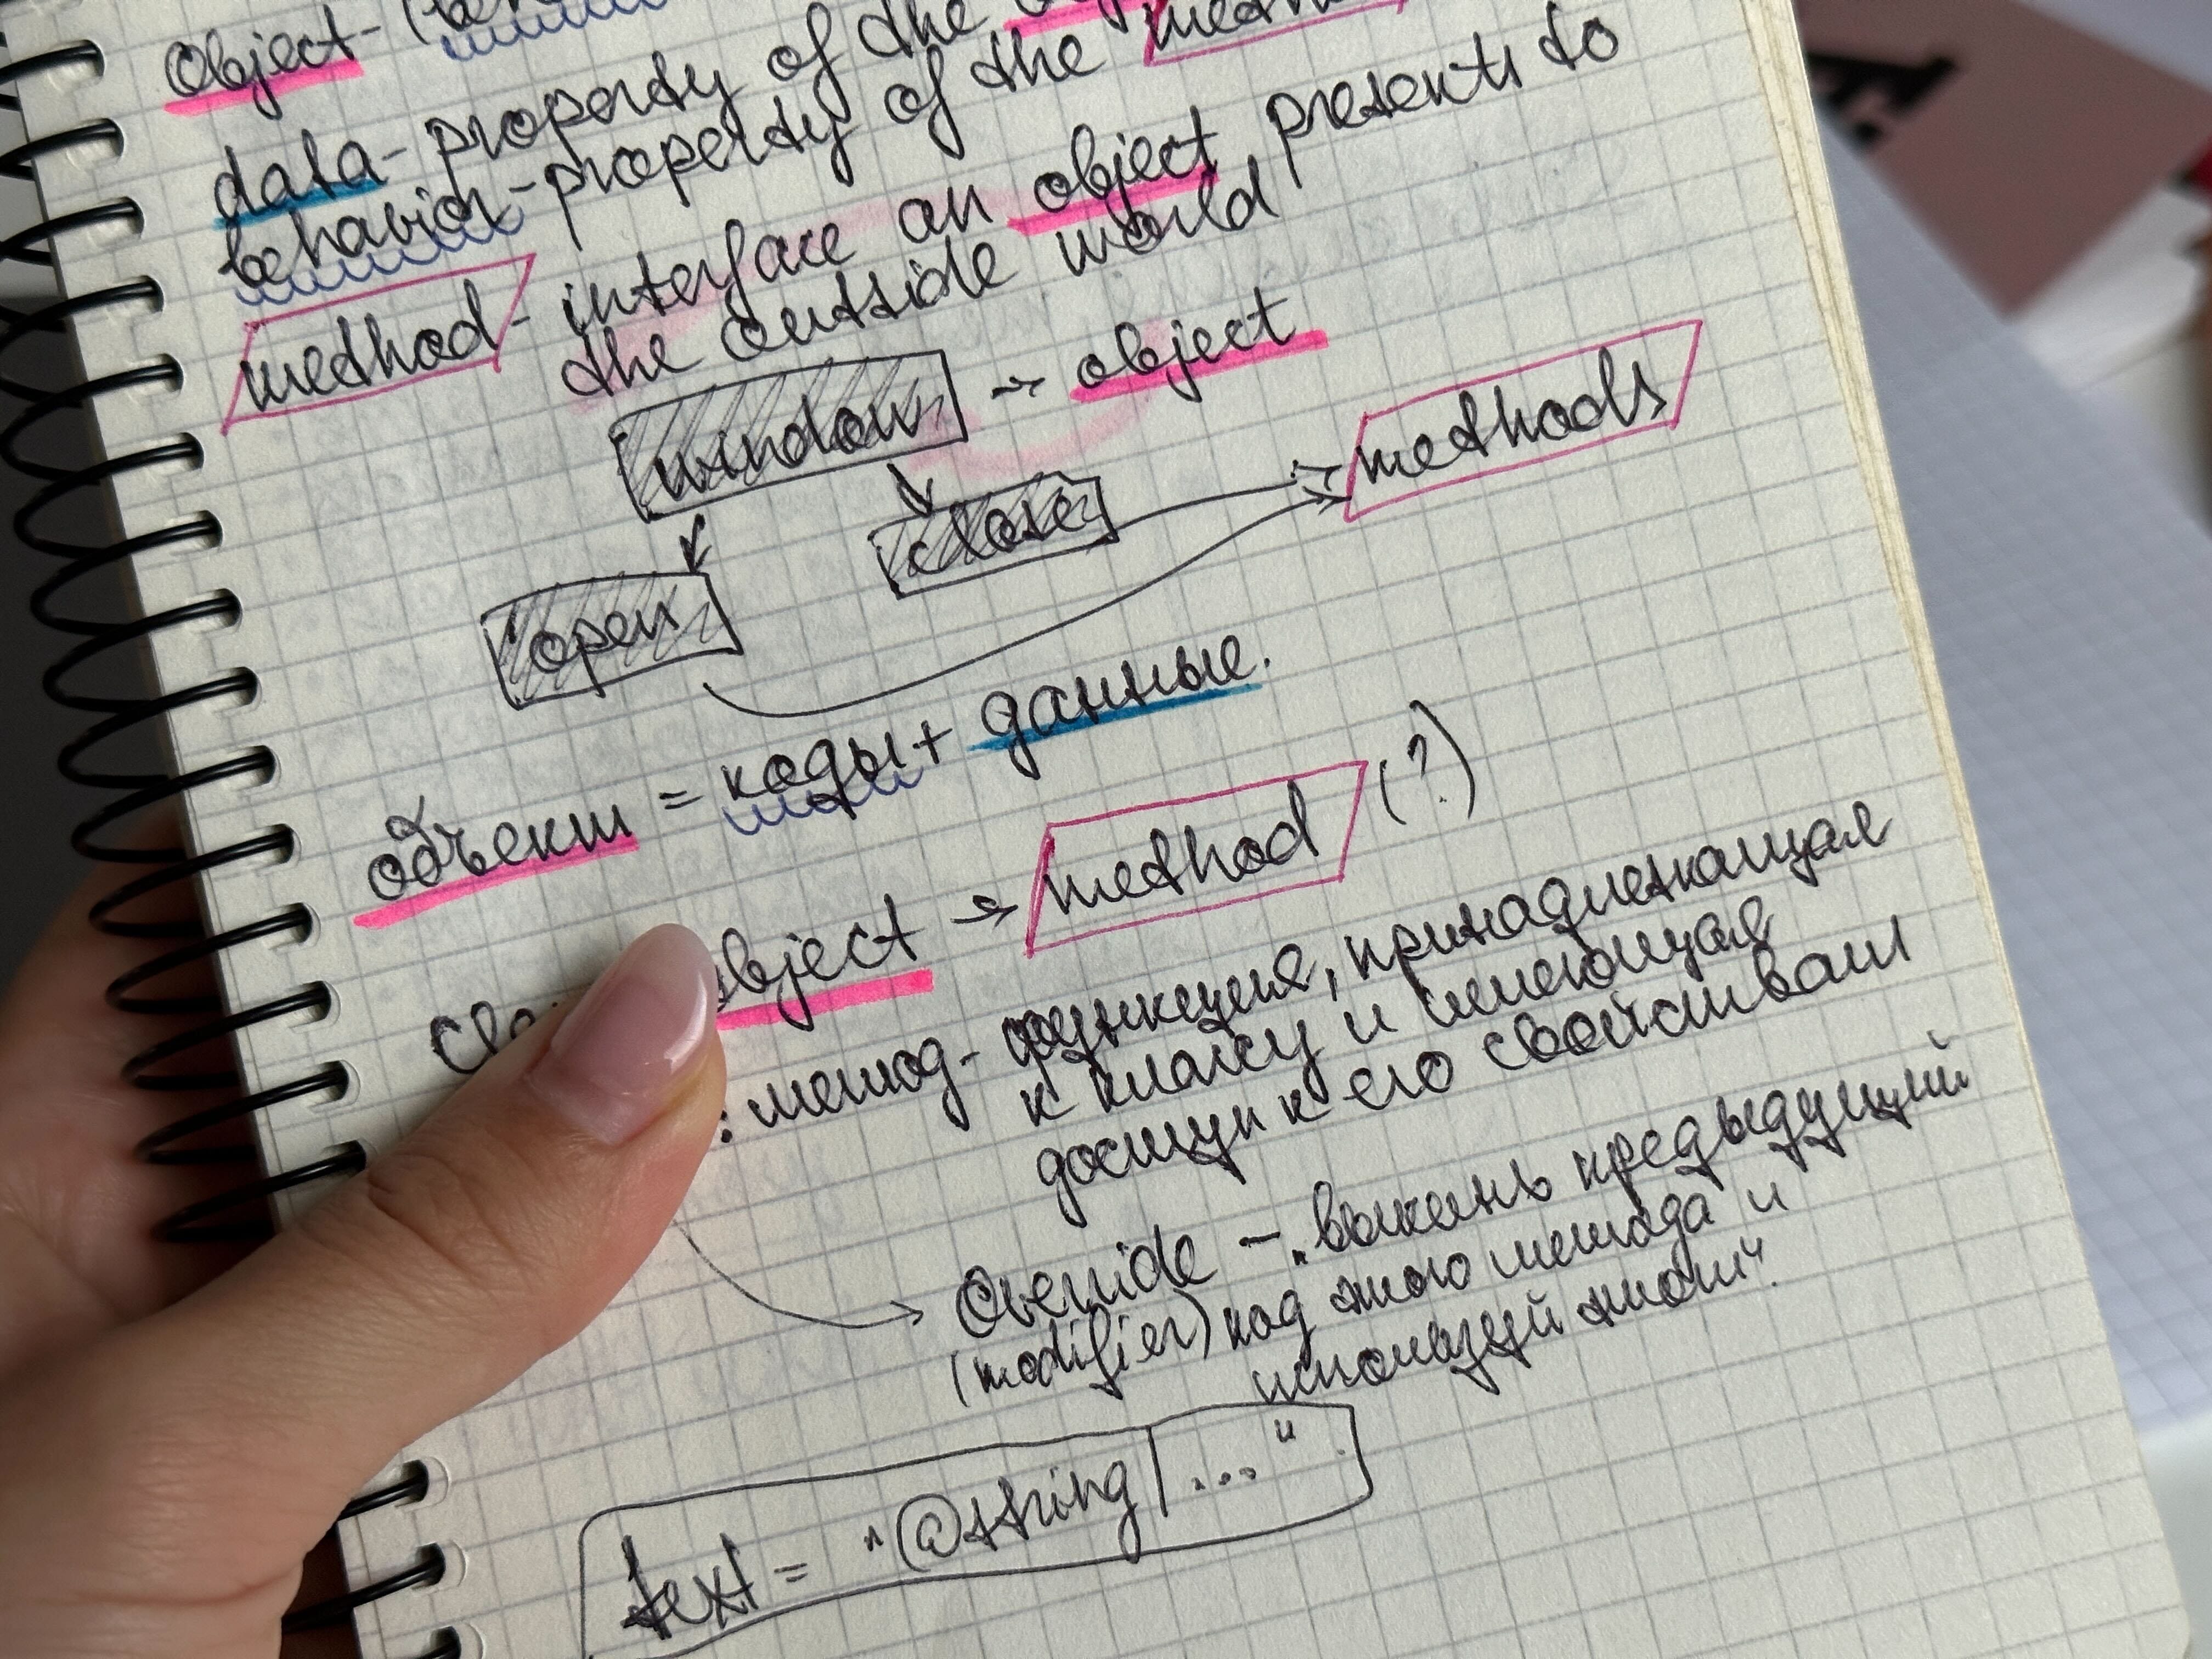 Object -
data - property of the
behavior - property of the
method - interface an object presents to
the outside world
window → object
close
methods
open
объект = коды + данные.
object → method (?)
: метод - функция, принадлежащая
к классу и имеющая
доступ к его свойствам
Override - "выкинь предыдущий
(modifier) код этого метода и
используй этот".
text = "@string/..."